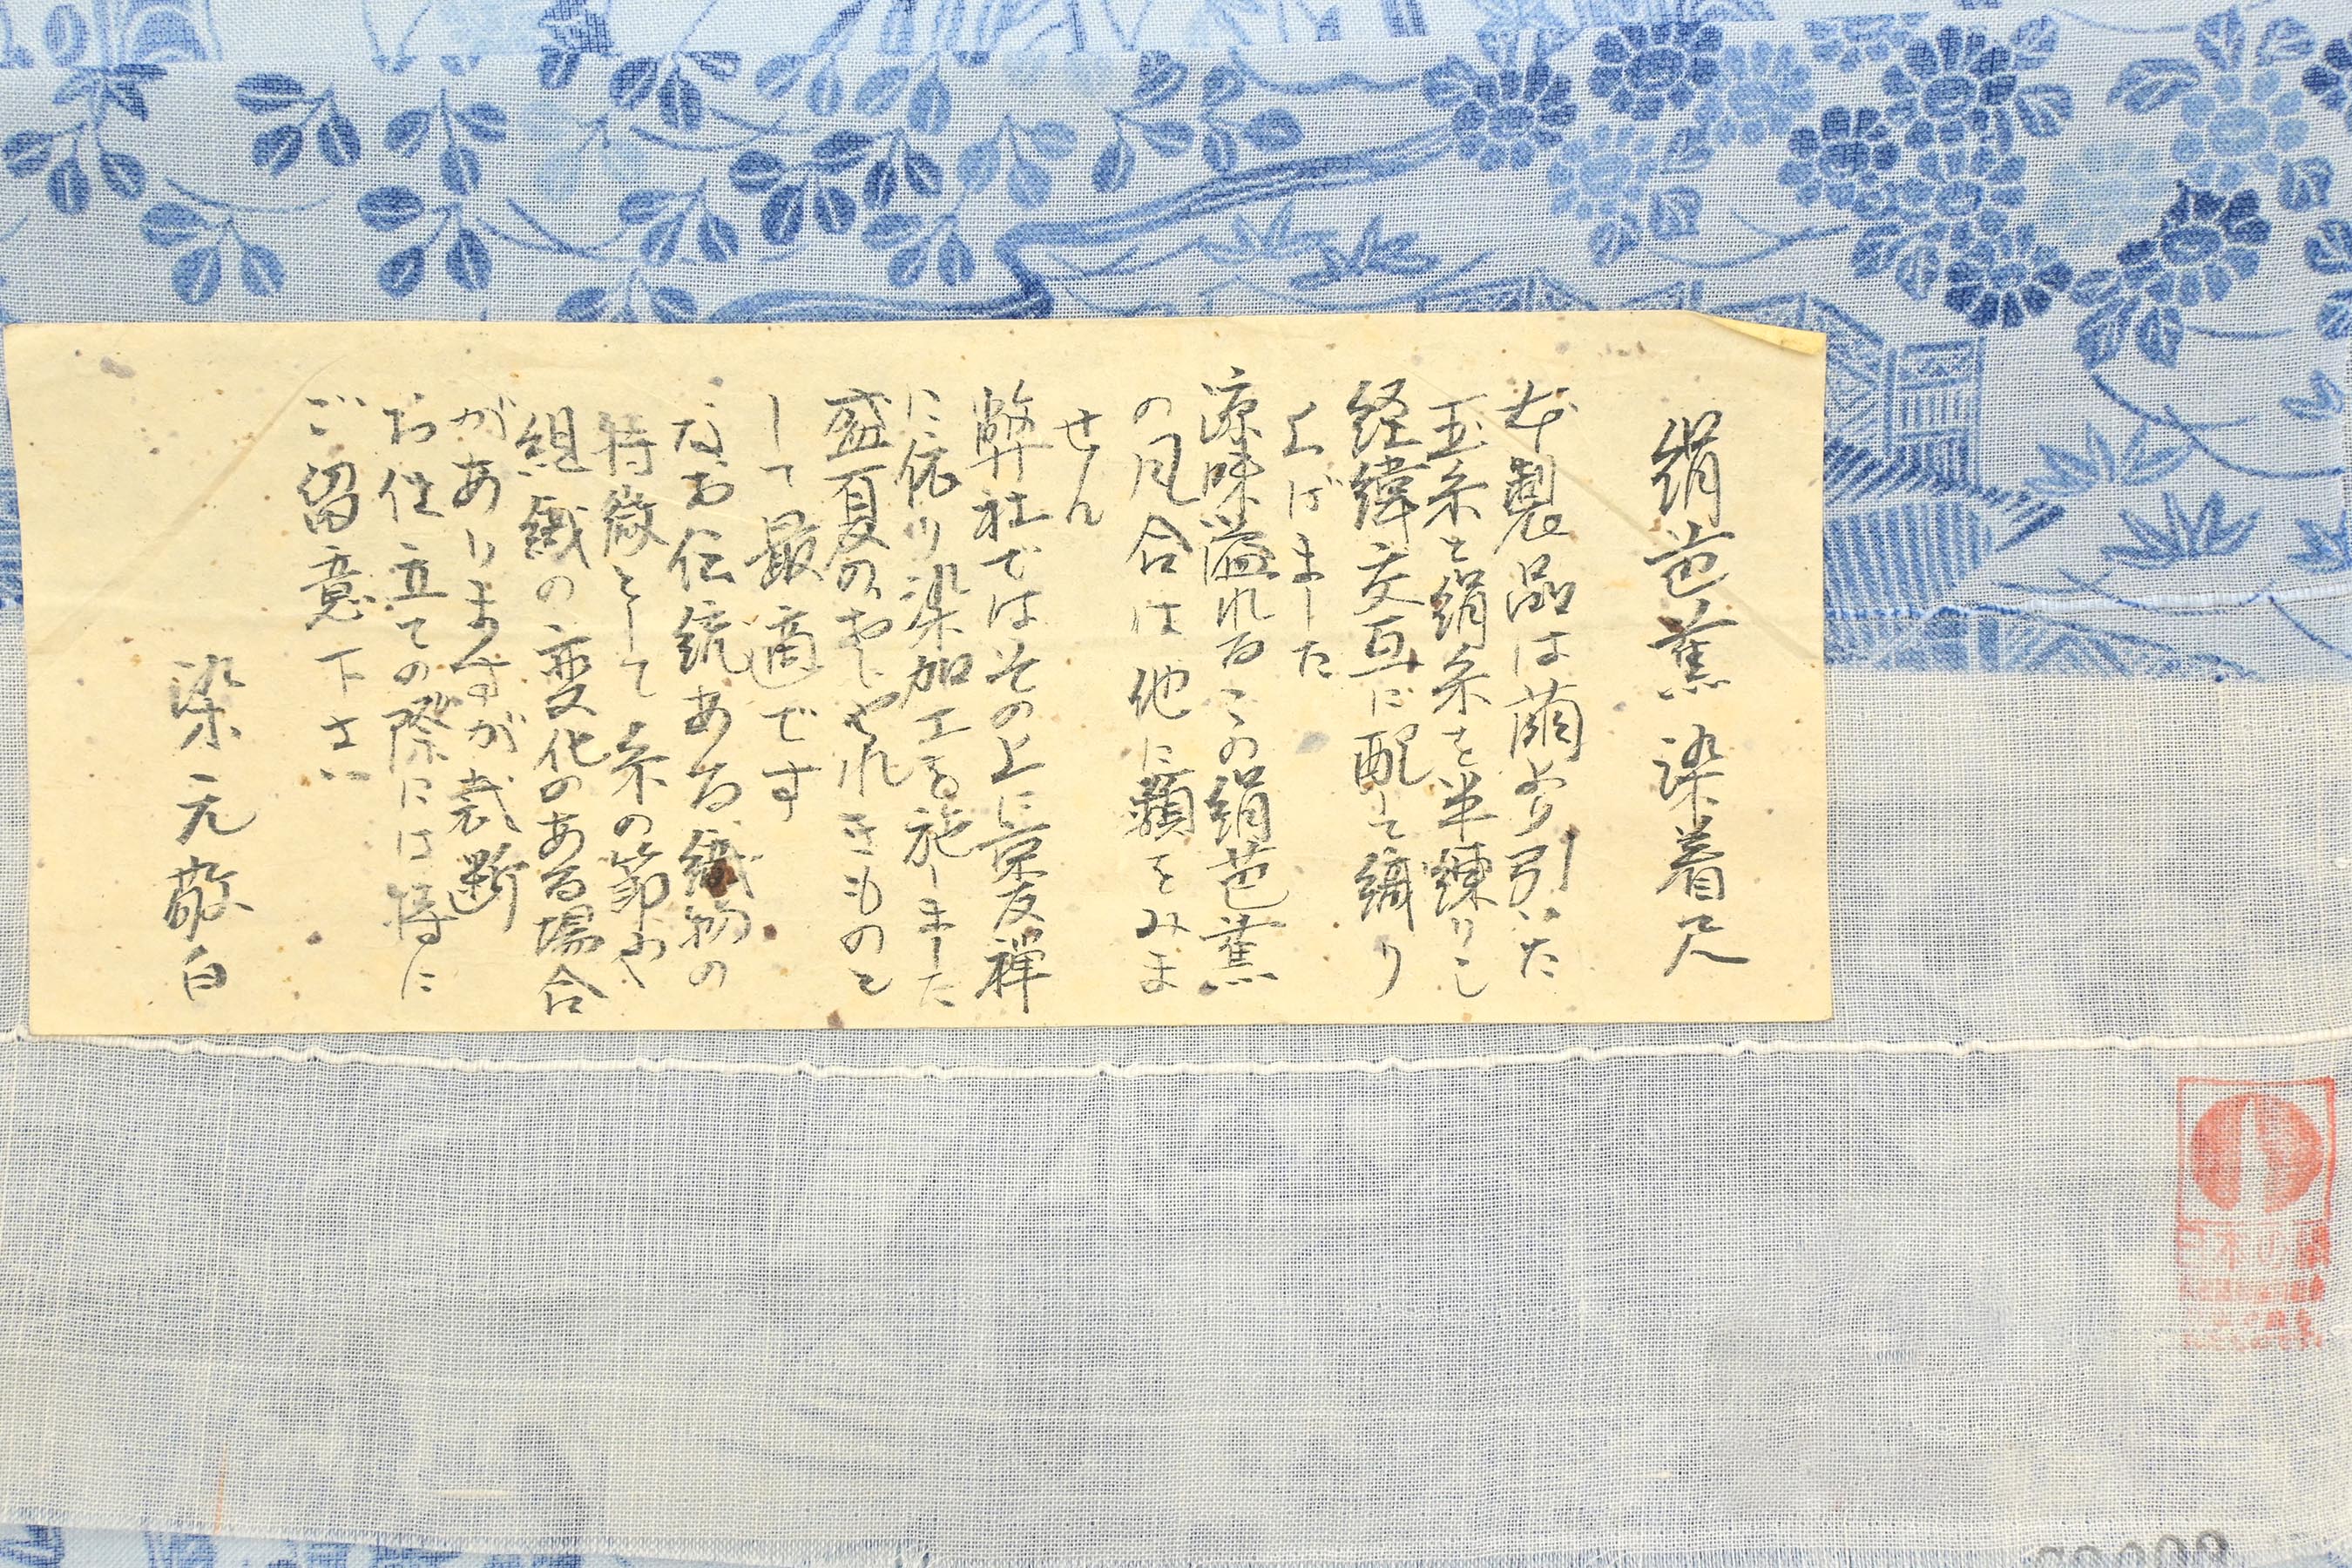 絹芭蕉染着尺
本製品は繭より引いた
玉糸と絹糸を半練りし
経緯交互に配して織り
上げました
涼味溢れるこの絹芭蕉
の風合は他に類をみま
せん
弊社ではその上に京友禅
に依り染加工を施しました
盛夏のおしゃれきものと
して最適です
なお伝統ある織物の
特徴として糸の節や
組織の変化のある場合
がありますが裁断
お仕立ての際には特に
ご留意下さい
染元敬白
日本の絹